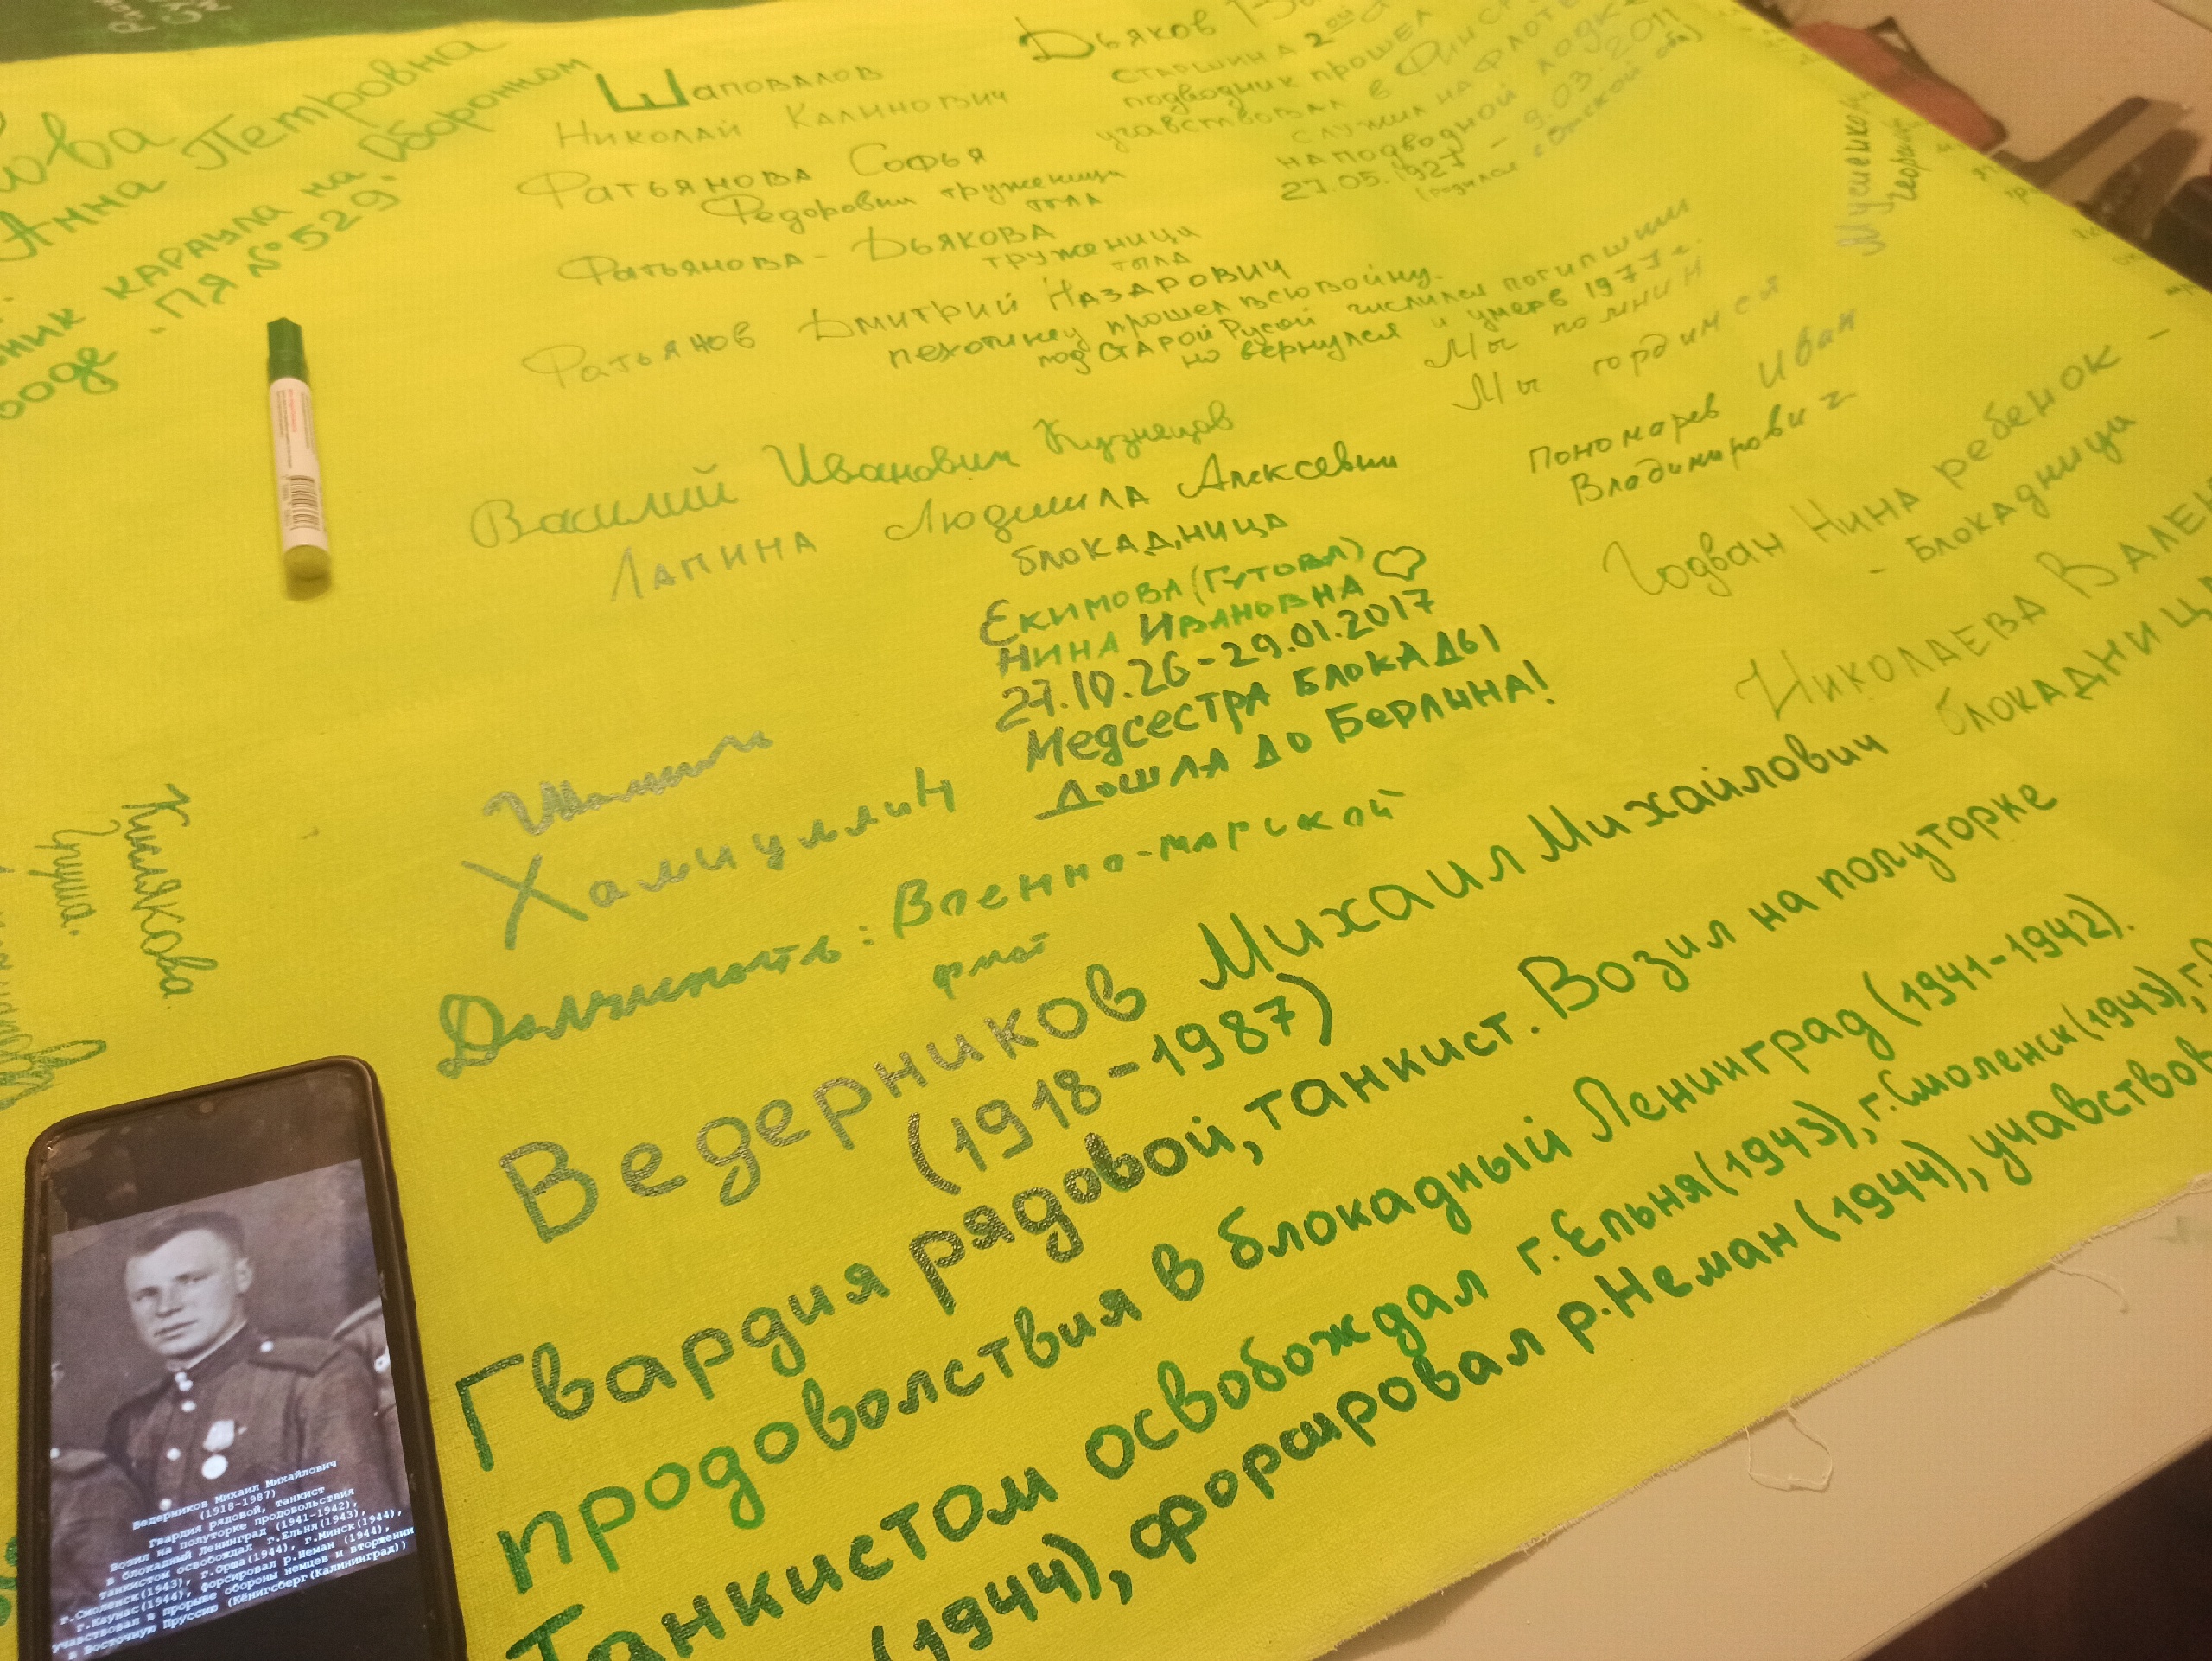 Анна Петровна
караула на Оборонном
"ПЯ №529"
Шаповалов
Николай Калинович
Фатьянова Софья
Федоровна труженица
тыла
Фатьянова-Дьякова
труженица
тыла
Фатьянов Дмитрий Назарович
пехотинец прошел всю войну.
под Старой Русой числился погибшим
но вернулся и умер в 1977 г.
Мы помним
Мы гордимся
Дьяков
старшина 2ой
подводник прошел
учавствовал в
служил на флоте
на подводной лодке
27.05.1927 - 9.03.2011
Василий Иванович Кузнецов
Лапина Людмила Алексевни
блокадница
Екимова (Гутова)
Нина Ивановна
27.10.26-29.01.2017
Медсестра блокады
дошла до Берлина!
Пономарев Иван
Владимирович
Годван Нина ребенок -
- блокадница
Николаева
блокадница
Хамиуллин
Должность: Военно-морской
Кислякова
Груша.
Ведерников Михаил Михайлович
(1918-1987)
Гвардия рядовой, танкист. Возил на полуторке
продоволствия в блокадный Ленинград (1941-1942).
Танкистом освобождал г.Ельня(1943), г.Смоленск(1943),
(1944), форсировал р.Неман (1944), учавствов
Ведерников Михаил Михайлович
(1918-1987)
Гвардия рядовой, танкист
возил на полуторке продовольствия
в блокадный Ленинград (1941-1942),
танкистом освобождал г.Ельня(1943),
г.Смоленск(1943), г.Орша(1944), г.Минск(1944),
г.Каунас(1944), форсировал р.Неман (1944),
учавствовал в прорыве обороны немцев и вторжении
в Восточную Пруссию (Кёнигсберг(Калининград))